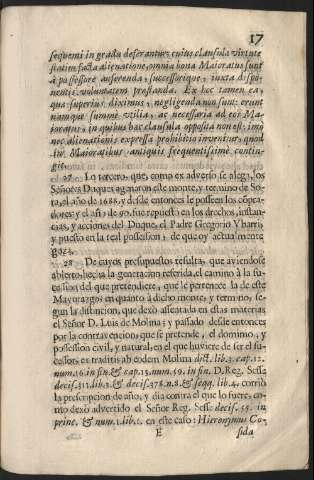 17
sequenti in gradu deferantur: cuius clausula virtute
statim facta alienatione, omnia bona Maioratus sunt
à possessore auferenda, successorique, iuxta dispo-
nentis voluntatem prestanda. Ex hoc tamen ea,
qua superius diximus, negligenda non sunt: erunt
namque summè vtilia, ac necessaria ad eos Ma-
ioratus, in quibus hac clausula opposita non est: imo
nec alienationis expressa prohibitio inventur, quod
in Maioratibus antiquis frequentissimè contin-
git.
27 Lo tercero, que, como ex adverso se alega, los
Señores Duques ganaron este monte, y termino de So-
ta, el año de 1688. y desde entonces le posseen los compra-
dores: y el año de 90. fue repuesto en los drechos, instan-
cias, y acciones del Duque, el Padre Gregorio Ybarra,
y puesto en la real possession, de que oy actualmente
goza.
28 De cuyos presupuestos resulta, que aviendose
abierto, hecha la generacion referida, el camino à la su-
cession del que pretendiere, que le pertenece la de este
Mayorazgo en quanto à dicho monte, y termino, se-
gun la distincion, que dexò assentada en estas materias
el Señor D. Luis de Molina; y passado desde entonces
por la contravencion que se pretende, el dominio, y
possession civil, y natural, en el que huviere de ser el su-
cessor, ex traditis ab eodem Molina dict. lib. 3. cap. 12.
num. 16. in fin. & cap. 13. num. 59. in fin. D. Reg. Sesse
decis. 311. lib. 3. & decis. 378. n. 8. & seqq. lib. 4. corriò
la prescripcion de año, y dia contra el que lo fuere, co-
mo dexò advertido el Señor Reg. Sesse decis. 55. in
princ. & num. 1. lib. 1. en este caso: Hieronymus Co-
E sida